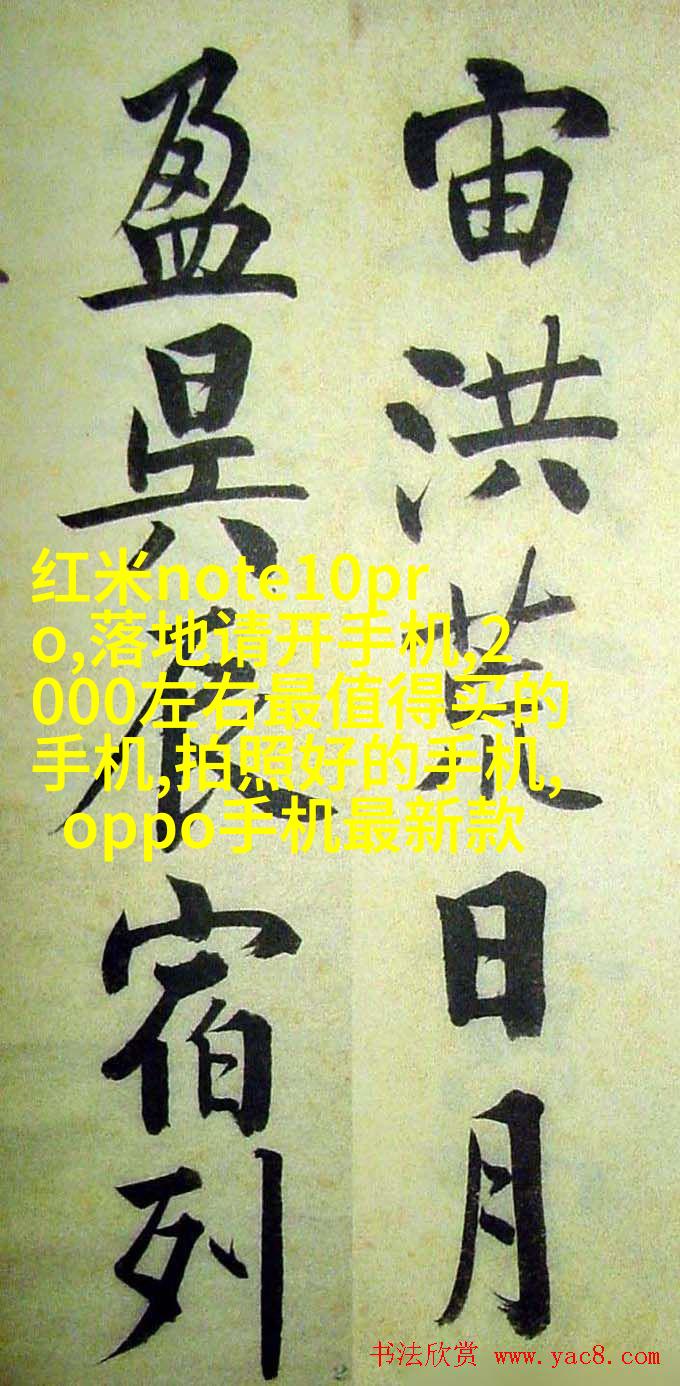 宙洪荒日月
盈昃辰宿列
红米note10pr
o,落地请开手机,2
000左右最值得买的
手机,拍照好的手机,
oppo手机最新款
书法欣赏 www.yac8.com